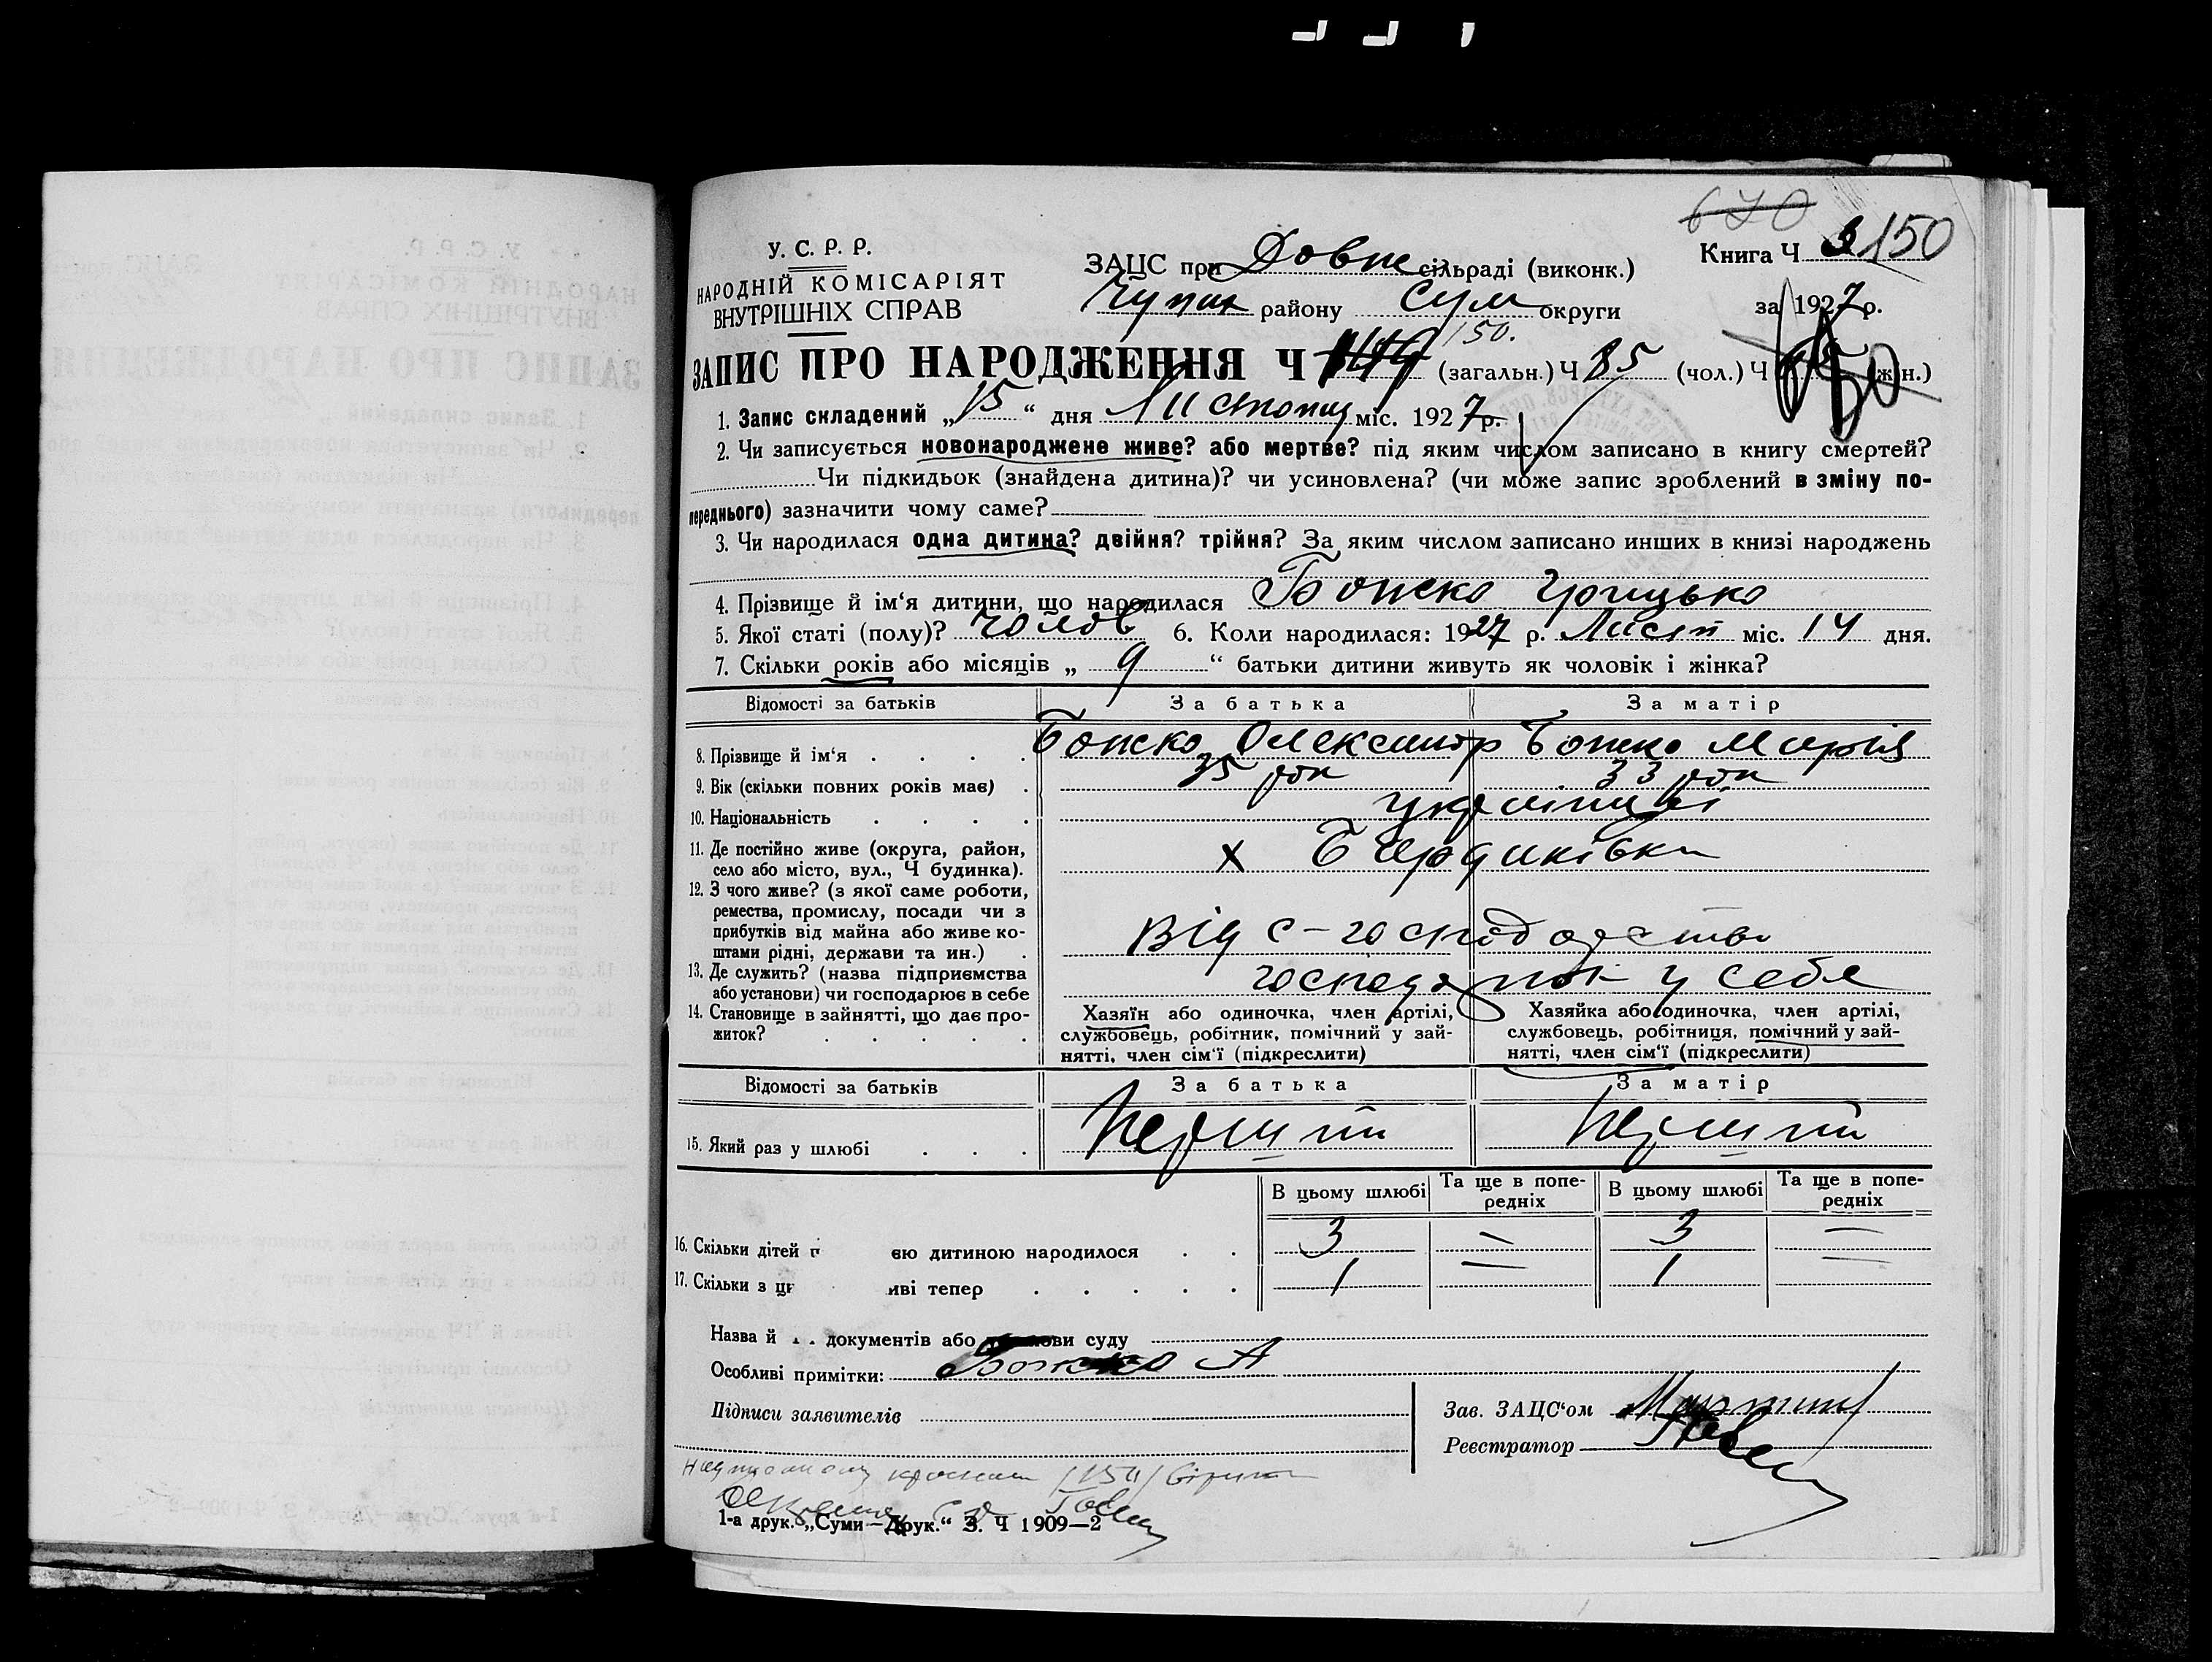 670
У. С. Р. Р.
НАРОДНІЙ КОМІСАРІЯТ
ВНУТРІШНІХ СПРАВ
ЗАЦС при Довж сільраді (виконк.)
Чупах району Сум округи
Книга Ч 3 150
за 1927 р.
150.
ЗАПИС ПРО НАРОДЖЕННЯ Ч 149 (загальн.) Ч 85 (чол.) Ч (жін.)
1. Запис складений „ 15 “ дня Листопад міс. 1927 р.
2. Чи записується новонароджене живе? або мертве? під яким числом записано в книгу смертей?
Чи підкидьок (знайдена дитина)? чи усиновлена? (чи може запис зроблений в зміну по-
переднього) зазначити чому саме?
3. Чи народилася одна дитина? двійня? трійня? За яким числом записано инших в книзі народжень
4. Прізвище й ім‘я дитини, що народилася Божко Грицько
5. Якої статі (полу)? Чолов 6. Коли народилася: 1927 р. Лист міс. 14 дня.
7. Скільки років або місяців „ 9 “ батьки дитини живуть як чоловік і жінка?
Відомості за батьків За батька За матір
8. Прізвище й ім‘я Божко Олександр Божко Марія
9. Вік (скільки повних років має) 35 рок 33 рок
10. Національність українці
11. Де постійно живе (округа, район,
село або місто, вул., Ч будинка). х Бардаківка
12. З чого живе? (з якої саме роботи,
ремества, промислу, посади чи з
прибутків від майна або живе ко-
штами рідні, держави та ин.) від с-господарства
13. Де служить? (назва підприємства
або установи) чи господарює в себе у себе
14. Становище в зайнятті, що дає про-
житок?
Хазяїн або одиночка, член артілі,
службовець, робітник, помічний у зай-
нятті, член сім‘ї (підкреслити)
Хазяйка або одиночка, член артілі,
службовець, робітниця, помічний у зай-
нятті, член сім‘ї (підкреслити)
Відомості за батьків За батька За матір
15. Який раз у шлюбі Перший Перший
В цьому шлюбі Та ще в попе-
редніх В цьому шлюбі Та ще в попе-
редніх
16. Скільки дітей п ею дитиною народилося 3 — 3 —
17. Скільки з ци иві тепер 1 — 1 —
Назва й документів або ови суду
Особливі примітки: Божко А
Підписи заявителів
Зав. ЗАЦС‘ом
Реєстратор
1-а друк. „Суми—Друк.“ З. Ч 1909—2